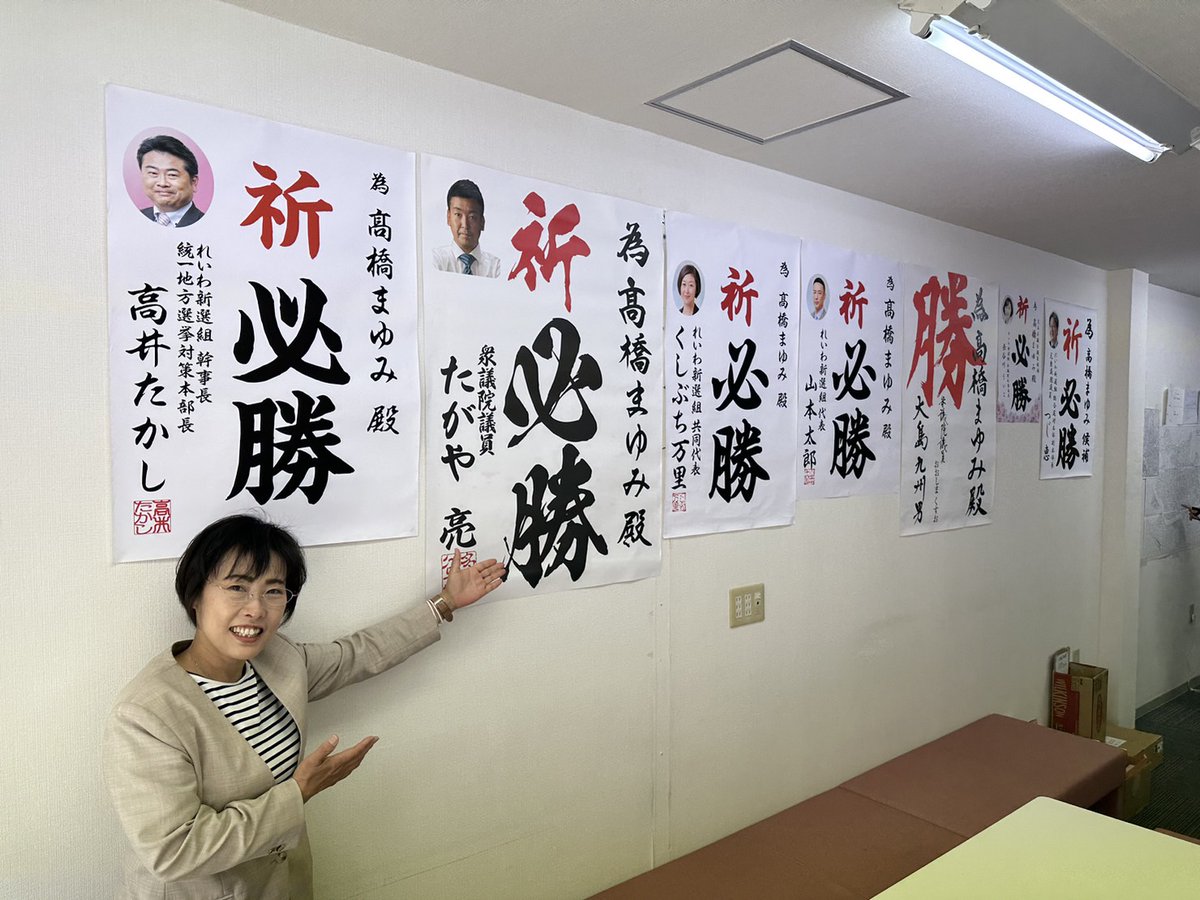 為 髙橋まゆみ 殿
祈 必勝
れいわ新選組 幹事長
統一地方選挙対策本部長
高井たかし
高井
たかし
為 髙橋まゆみ 殿
祈 必勝
衆議院議員
たがや 亮
為 髙橋まゆみ 殿
祈 必勝
れいわ新選組 共同代表
くしぶち万里
為 髙橋まゆみ 殿
祈 必勝
れいわ新選組代表
山本太郎
為 髙橋まゆみ 殿
勝
大島九州男
祈 必勝
為 髙橋まゆみ 候補
祈 必勝
WILKINSON